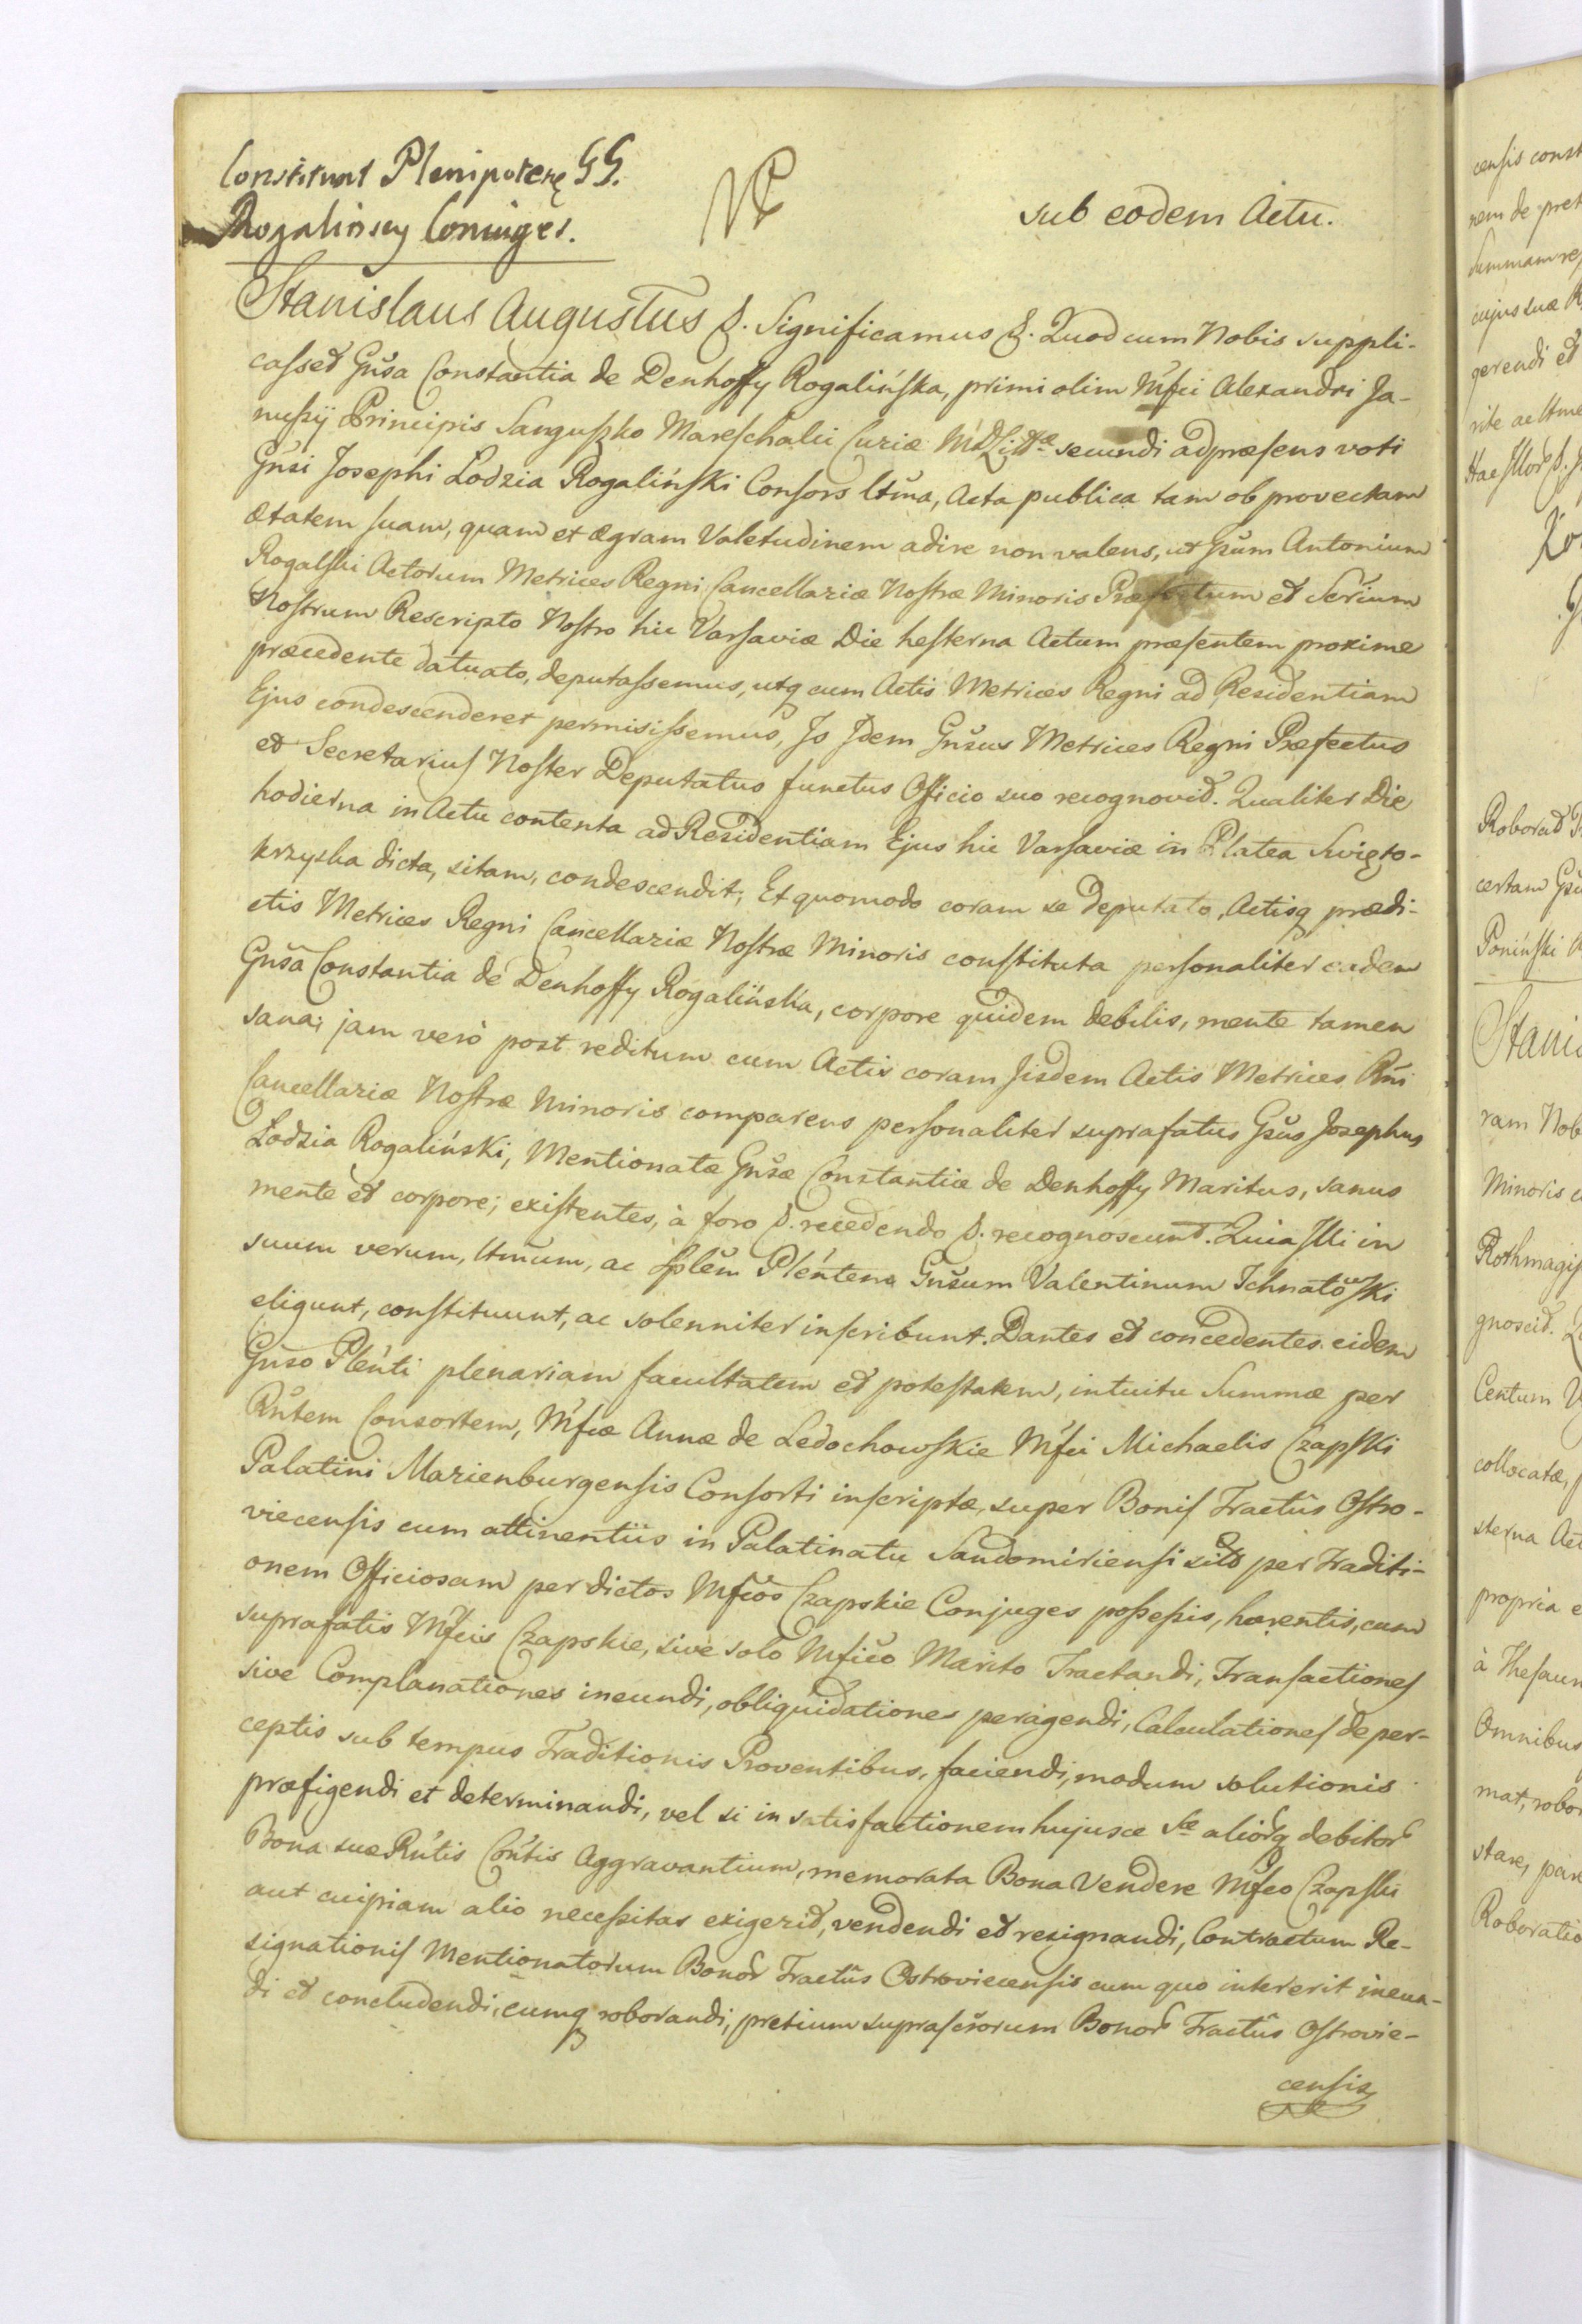 Constituut Plenipotenę GG.
Rogalinscy Coniuges.
sub eodem Actu.
Stanislaus Augustus &. Significamus &. Quod cum Nobis suppli-
cassed Gn̄sa Constantia de Denhoffy Rogalińska, primi olim M̄fci Alexandri Ja-
nussij Principis Sanguszko Mareschalci Curiæ M.D.Litt̄æ secundi ad præsens voti
Gn̄si Josephi Lodzia Rogaliński Consors ltm̄a, Acta publica tam ob provectam
ætatem suam, quam et ægram Valetudinem adire non valens, ut Gn̄sum Antonium
Rogalski Actorum Metrices Regni Cancellariæ Nostræ Minoris Præfectum et Secr̄ium
Nostrum Rescripto Nostro hic Varsaviæ Die hesterna Actum præsentem proxime
præcedente datuato, deputassemus, utq cum Actis Metrices Regni ad Residentiam
Ejus condescenderet permisissemus, Is Idem Gn̄sus Metrices Regni Præfectus
et Secretarius Noster Deputatus functus Officio suo recognovit. Qualiter Die
hodierna in Actu contenta ad Residentiam Ejus hic Varsaviæ in Platea Swięto-
krzyska dicta, sitam, condescendit; Et quomodo coram se deputato, Actisq prædi-
ctis Metrices Regni Cancellariæ Nostræ Minoris constituta personaliter eadem
Gn̄sa Constantia de Denhoffy Rogalińska, corpore quidem debilis, mente tamen
sana; jam verò post reditum cum Actis coram Iisdem Actis Metrices Rn̄i
Cancellariæ Nostræ Minoris comparens personaliter suprafatus Gn̄sus Josephus
Lodzia Rogaliński, Mentionatæ Gn̄sæ Constantiæ de Denhoffy Maritus, sanus
mente et corpore; existentes, à foro &. recedendo &. recognoscunt. Quia Illi in
suum verum, ltm̄um, ac Sp̄lem Plēntem Gn̄sum Valentinum Ichnatowski
eligunt, constituunt, ac solenniter inscribunt. Dantes et concedentes eidem
Gn̄so Plēnti plenariam facultatem et potestatem, intuitu Summæ per
Rn̄tem Consortem, M̄fcæ Annæ de Ledochowskie M̄fci Michaelis Czapski
Palatini Marienburgensis Consorti inscriptæ, super Bonis Tractûs Ostro-
viecensis cum attinentiis in Palatinatu Sandomiriensi sitis per Traditi-
onem Officiosam per dictos M̄fcos Czapskie Conjuges possessis, hærentis, cum
suprafatis M̄fcis Czapskie, sive solo M̄fico Marito Tractandi, Transactiones
sive Complanationes ineundi, obliquidationes peragendi, Calculationes de per-
ceptis sub tempus Traditionis Proventibus, faciendi, modum solutionis
præfigendi et determinandi, vel si in satisfactionem hujusce S̄æ aliorq debitor
Bona suæ Rn̄tis Cōntis Aggravantium, memorata Bona Vendere M̄fco Czapski
aut cuipiam alio necessitas exigerit, vendendi et resignandi, Contractum Re-
signationis Mentionatorum Bonor Tractûs Ostroviecensis cum quo intererit ineun-
di et concludendi, eumq roborandi, pretium suprascr̄orum Bonor Tractûs Ostrovie-
censis
censis const
nem de pret
Summam re
cujus suæ R
gerendi et
rite ac ltme
Roborat
certam
Poniński
Stani
ram Nob
Minoris c
Rothmagis
gnoscit.
Centum
collocatæ,
sterna Act
propria e
à Thesaur
Omnibus
mat, robor
stare, par
Roboratio